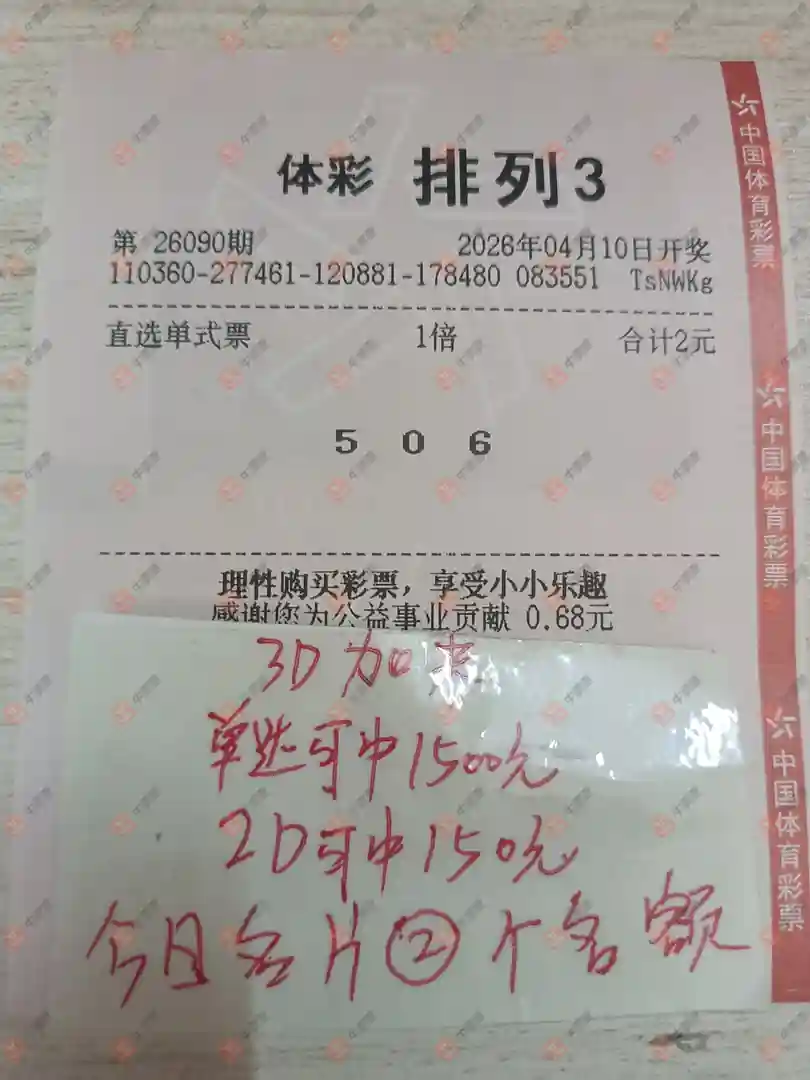 体彩 排列3
第 26090期 2026年04月10日开奖
110360-277461-120881-178480 083551 TsNWKg
直选单式票 1倍 合计2元
5 0 6
理性购买彩票，享受小小乐趣
感谢您为公益事业贡献 0.68元
3D加奖
单选可中1500元
2D可中150元
今日名片②个名额
中国体育彩票
中国体育彩票
中国体育彩票